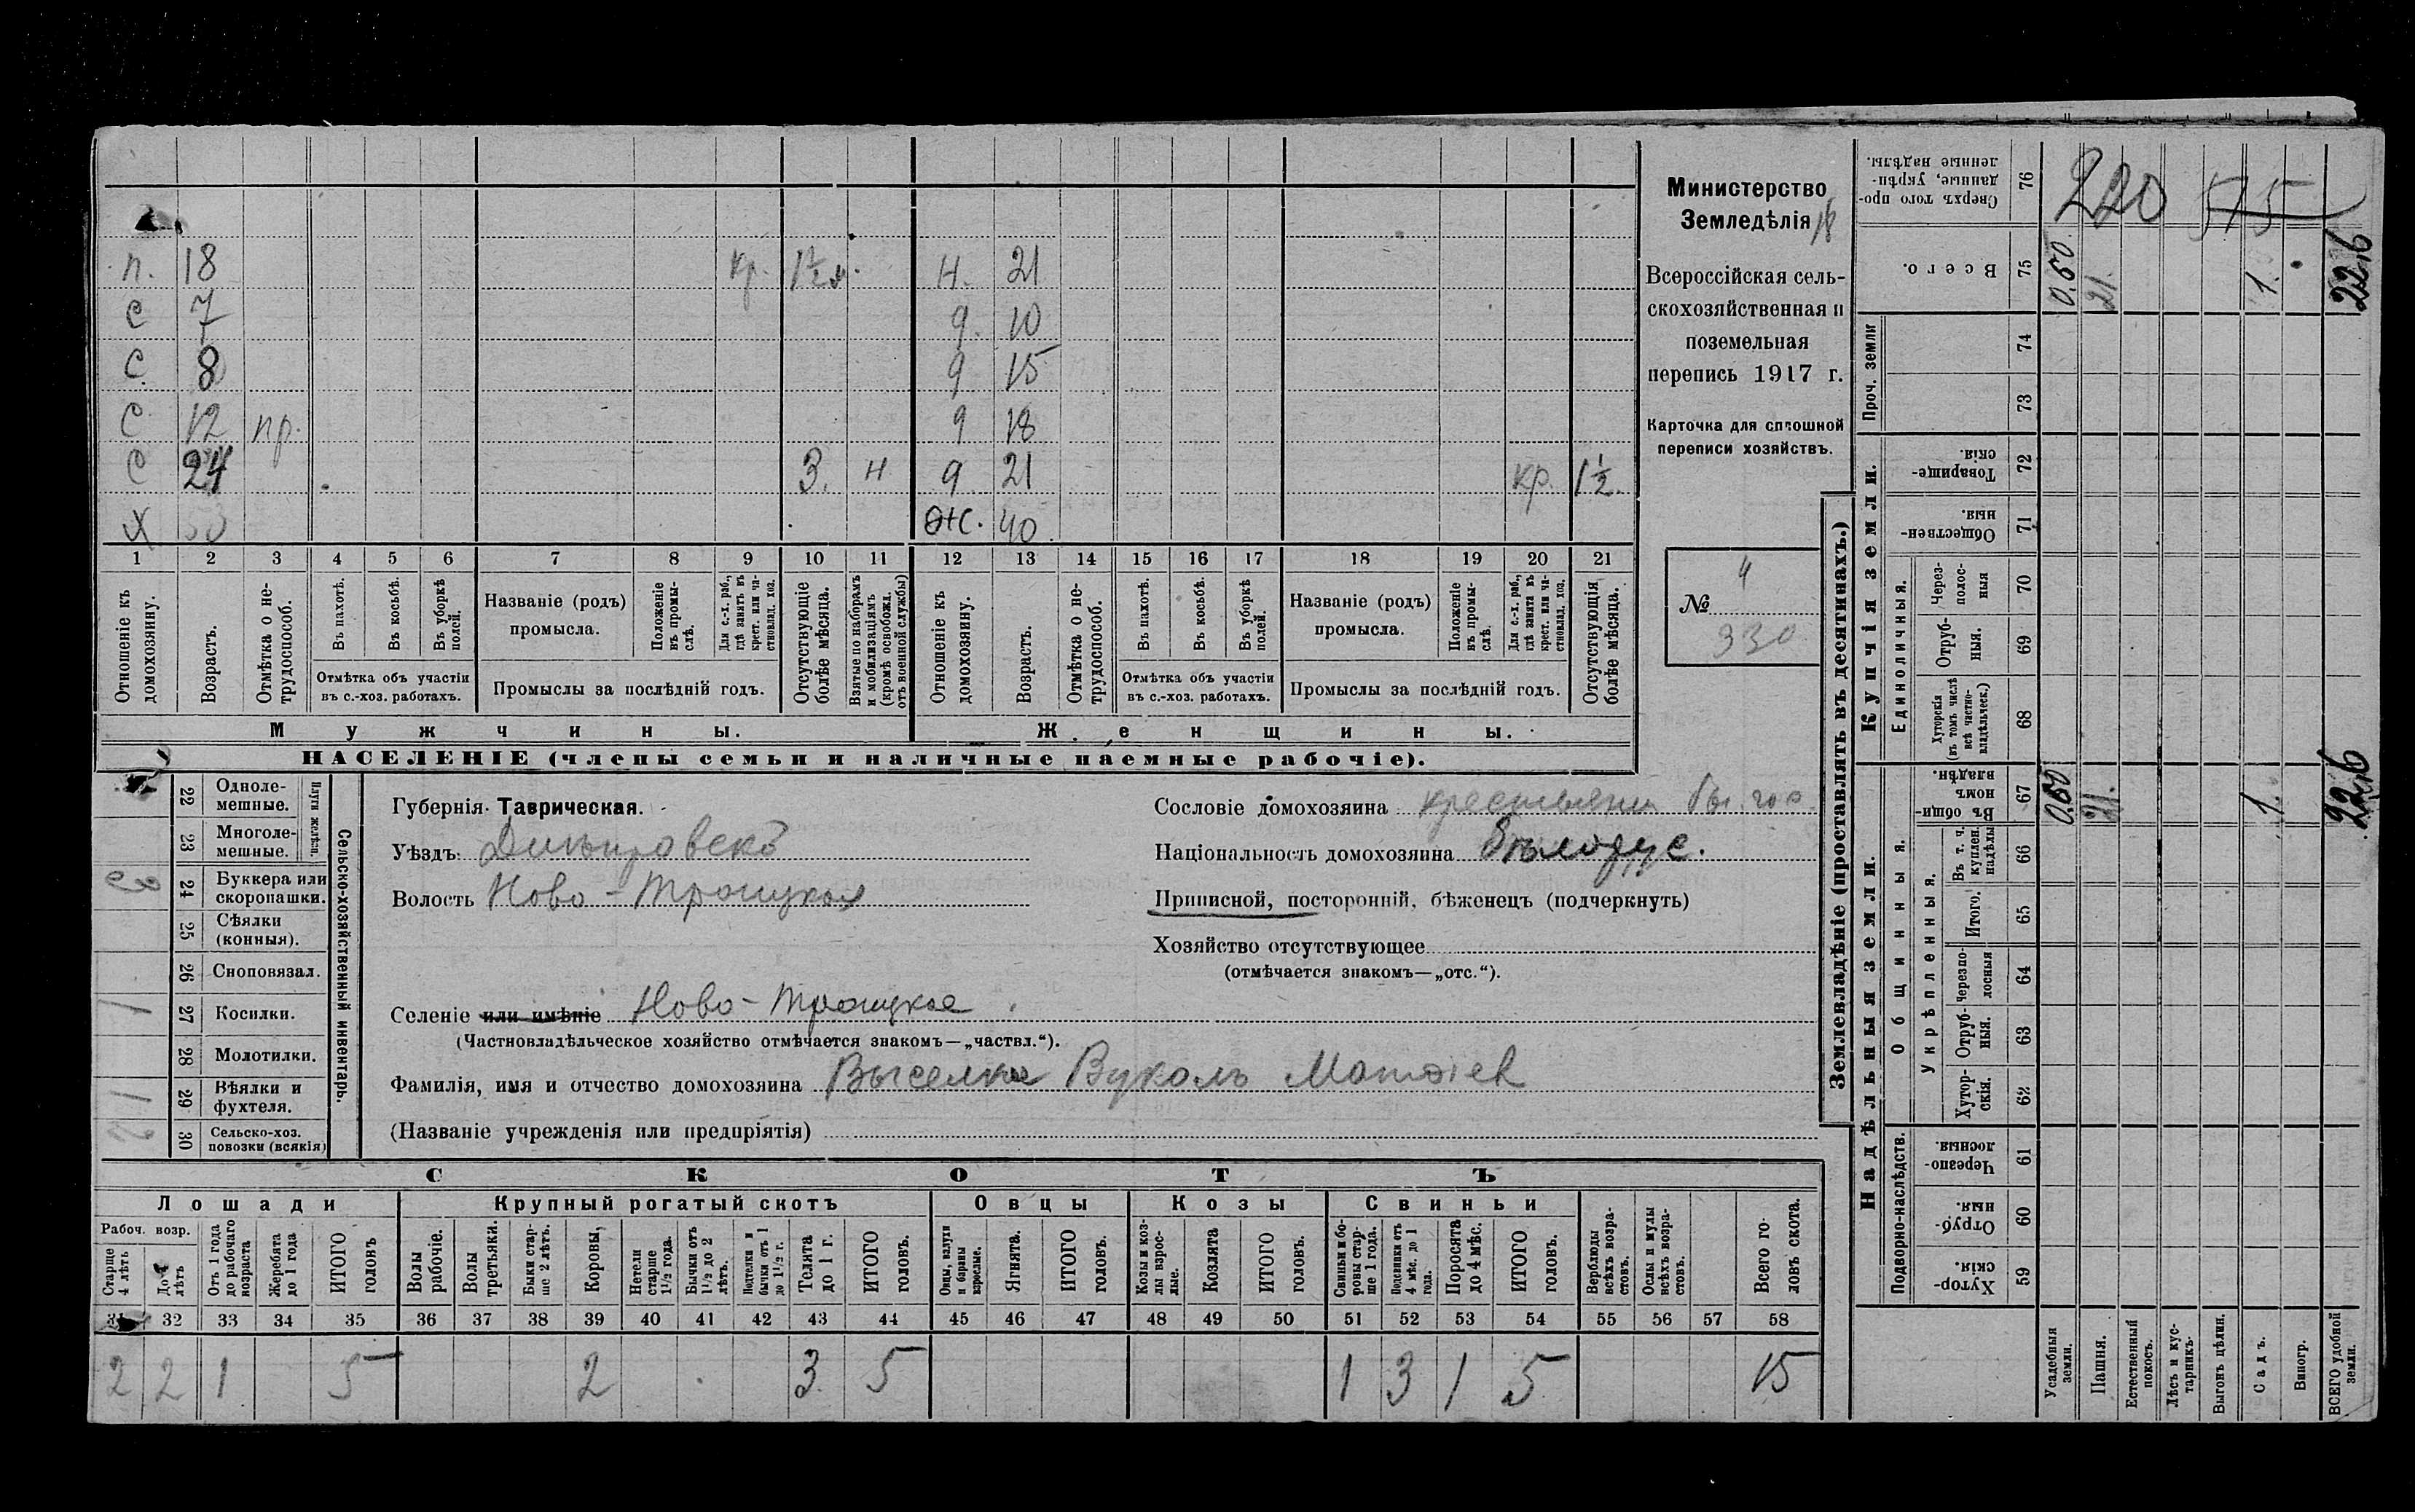 п. 18 кр. 1½ м. н. 21
с 7 д. 10
с. 8 д 15
с 12 пр. д 18
с 24 3. н д. 21 кр. 1½.
х 53 ж. 40.
1 2 3 4 5 6 7 8 9 10 11 12 13 14 15 16 17 18 19 20 21
Отношеніе къ домохозяину.
Возрастъ.
Отмѣтка о не-
трудоспособ.
Въ пахотѣ.
Въ косьбѣ.
Въ уборкѣ полей.
Отмѣтка объ участіи
въ с.-хоз. работахъ.
Названіе (родъ)
промысла.
Положеніе
въ промы-
слѣ.
Для с.-х. раб.,
гдѣ занятъ въ
крест. или ча-
стновлад. хоз.
Промыслы за послѣдній годъ.
Отсутствующіе
болѣе мѣсяца.
Взятые по наборамъ
и мобилизаціямъ
(кромѣ освобожд.
отъ военной службы)
Отношеніе къ
домохозяину.
Возрастъ.
Отмѣтка о не-
трудоспособ.
Въ пахотѣ.
Въ косьбѣ.
Въ уборкѣ
полей.
Отмѣтка объ участіи
въ с.-хоз. работахъ.
Названіе (родъ)
промысла.
Положеніе
въ промы-
слѣ.
Для с.-х. раб.,
гдѣ занята въ
крест. или ча-
стновлад. хоз.
Промыслы за послѣдній годъ.
Отсутствующія
болѣе мѣсяца.
Мужчины.
Женщины.
НАСЕЛЕНІЕ (члены семьи и наличные наемные рабочіе).
Министерство
Земледѣлія
Всероссійская сель-
скохозяйственная и
поземельная
перепись 1917 г.
Карточка для сплошной
переписи хозяйствъ.
4
№
330
22 Одноле-
мешные.
23 Многоле-
мешные.
Плуги желѣзн.
24 Буккера или
скоропашки.
25 Сѣялки
(конныя).
26 Сноповязал.
1 27 Косилки.
28 Молотилки.
1 29 Вѣялки и
фухтеля.
2 30 Сельско-хоз.
повозки (всякія)
Сельско-хозяйственный инвентарь.
Губернія Таврическая.
Уѣздъ Днѣпровскъ
Волость Ново-Троицкая
Сословіе домохозяина крестьянин бы. гос.
Національность домохозяина бѣлорус.
Приписной, посторонній, бѣженецъ (подчеркнуть)
Хозяйство отсутствующее
(отмѣчается знакомъ—„отс.“).
Селеніе или имѣніе Ново-Троицкое
(Частновладѣльческое хозяйство отмѣчается знакомъ—„частвл.“).
Фамилія, имя и отчество домохозяина Выселка Вуколъ Матѳіев
(Названіе учрежденія или предпріятія)
СКОТЪ
Лошади
Крупный рогатый скотъ
Овцы
Козы
Свиньи
Рабоч. возр.
Старше
4 лѣтъ
До 4
лѣтъ
Отъ 1 года
до рабочаго
возраста
Жеребята
до 1 года
ИТОГО
головъ
Волы
рабочіе.
Волы
третьяки.
Быки стар-
ше 2 лѣтъ.
Коровы,
Нетели
старше
1½ года.
Бычки отъ
1½ до 2
лѣтъ.
Подтелки и
бычки отъ 1
до 1½ г.
Телята
до 1 г.
ИТОГО
головъ.
Овцы, валухи
и бараны
взрослые.
Ягнята.
ИТОГО
головъ.
Козы и коз-
лы взрос-
лые.
Козлята
ИТОГО
головъ.
Свиньи и бо-
ровы стар-
ше 1 года.
Подсвинки отъ
4 мѣс. до 1
года.
Поросята
до 4 мѣс.
ИТОГО
головъ.
Верблюды
всѣхъ возра-
стовъ.
Ослы и мулы
всѣхъ возра-
стовъ.
Всего го-
ловъ скота.
31 32 33 34 35 36 37 38 39 40 41 42 43 44 45 46 47 48 49 50 51 52 53 54 55 56 57 58
2 2 1 5 2 3 5 1 3 1 5 15
Землевладѣніе (проставлять въ десятинахъ.)
Надѣльныя земли.
Купчія земли.
Проч. земли
Подворно-наслѣдств.
Общинныя.
Укрѣпленныя.
Единоличныя.
Сверхъ того про-
данные, укрѣп-
ленные надѣлы. 76 220 575
Всего. 75 0.60 21. 1. 22,6
74
73
Товарище-
скія. 72
Обществен-
ныя. 71
Через-
полос-
ныя 70
Отруб-
ныя. 69
Хуторскія
(въ томъ числѣ
всѣ частно-
владѣльческ.) 68
Въ общи-
номъ
владѣн. 67 0.60 21. 1. 22,6
Въ т. ч.
куплен.
надѣлы 66
Итого. 65
Черезпо-
лосныя 64
Отруб-
ныя. 63
Хутор-
скія. 62
Черезпо-
лосныя. 61
Отруб-
ныя. 60
Хутор-
скія. 59
Усадебныя
земли.
Пашня.
Естественный
покосъ.
Лѣсъ и кус-
тарникъ.
Выгонъ цѣлин.
Садъ.
Виногр.
ВСЕГО удобной
земли.